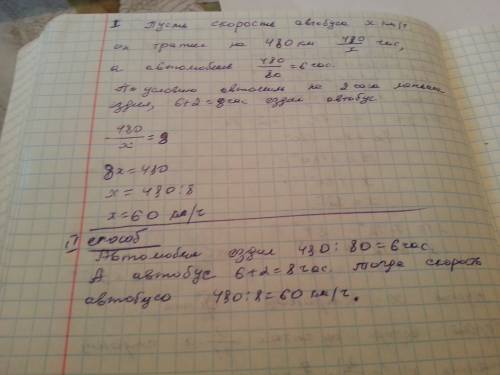 I Пусть скорость автобуса x км/г
он тратил на 480 км 480/x час,
а автомобиль 480/80 = 6 час.
По условию автомобиль на 2 часа меньше
ездил, 6+2=8 час ездил автобус
480/x = 8
8x = 480
x = 480 : 8
x = 60 км/г
II способ
Автомобиль ездил 480 : 80 = 6 час.
А автобус 6+2=8 час. тогда скорость
автобуса 480:8=60 км/г.